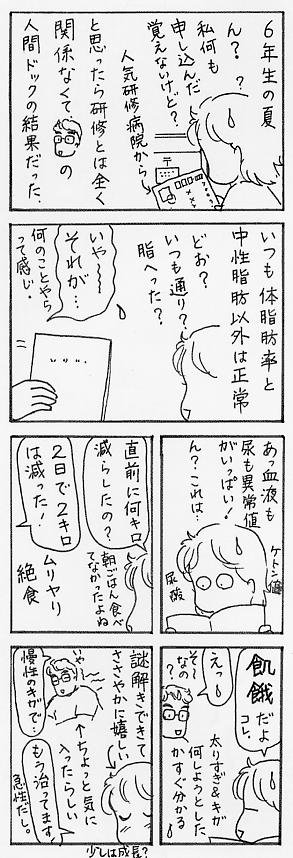 6年生の夏
ん？ ？
私何も
申し込んだ
覚えないけど？
人気研修病院から
と思ったら研修とは全く
関係なくて の
人間ドックの結果だった。
いつも体脂肪率と
中性脂肪以外は正常
どお？
いつも通り？
脂へった？
いや〜〜
それが…
何のことやら
って感じ。
あっ血液も
尿も異常値
がいっぱい！
ん？これは…
ケトン値
尿酸
直前に何キロ
減らしたの？
朝ごはん食べ
てなかったよね
2日で2キロ
は減った！
ムリヤリ
絶食
飢餓だよ
コレ。
えっ
そ〜
なの
？
太りすぎ＆キガ
何しようとした
かすぐ分かる
謎解きできて
ささやかに嬉しい
いや〜
慢性のキガで…
↑ちょっと気に
入ったらしい
もう治ってます！
急性だし。
少しは成長？